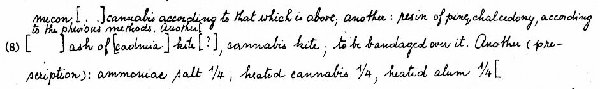 mucon; [. .] cannabis according to that which is above; another: resin of pine, chalcedony, according
to the previous methods. Another[
(8) [ ] ash of [ ] kete [?], cannabis kete; to be bandaged over it. Another (pre-
scription): ammoniac salt 1/4, heated cannabis 1/4, heated alum 1/4 [